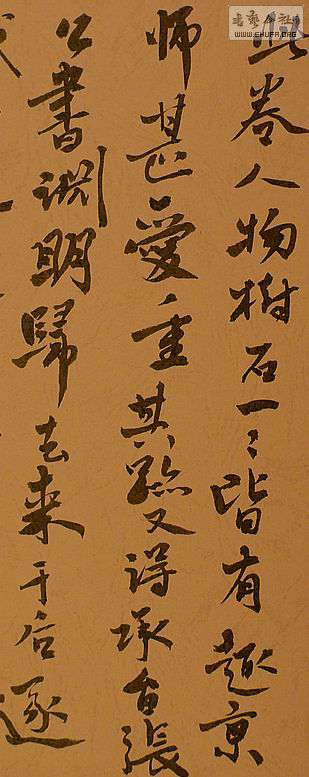 此卷人物樹石一々皆有趣京
師甚愛重其跡又得承旨張
公書淵明歸去來于后逐
书艺公社
WWW.SHUFA.ORG